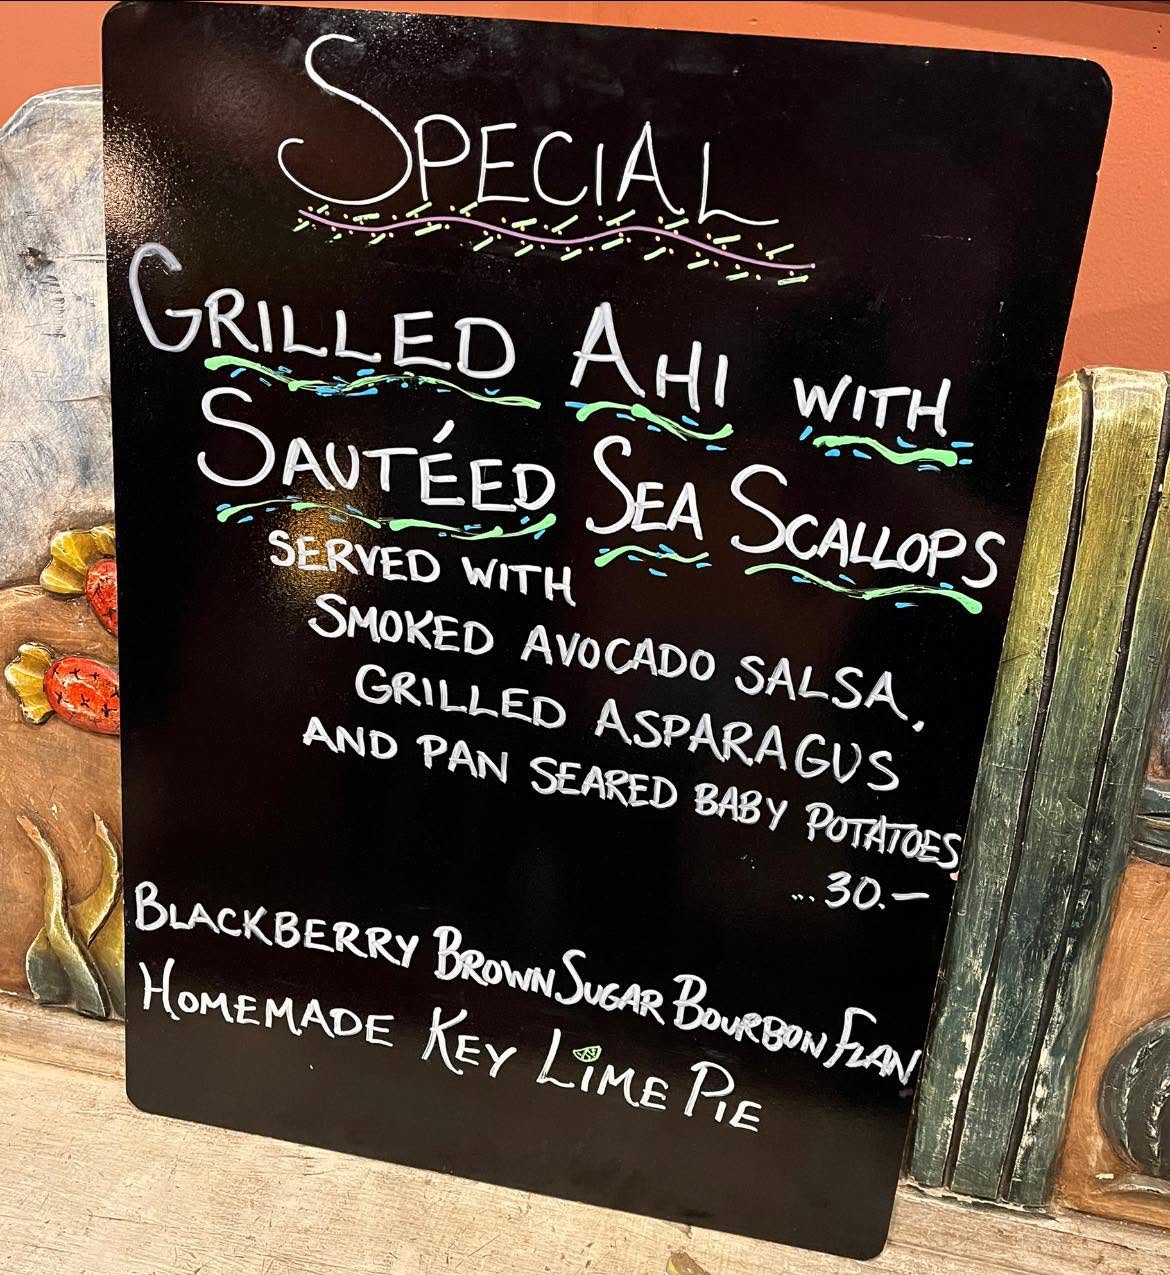 SPECIAL
GRILLED AHI WITH
SAUTÉED SEA SCALLOPS
SERVED WITH
SMOKED AVOCADO SALSA,
GRILLED ASPARAGUS
AND PAN SEARED BABY POTATOES
...30.—
BLACKBERRY BROWN SUGAR BOURBON FLAN
HOMEMADE KEY LiME PIE